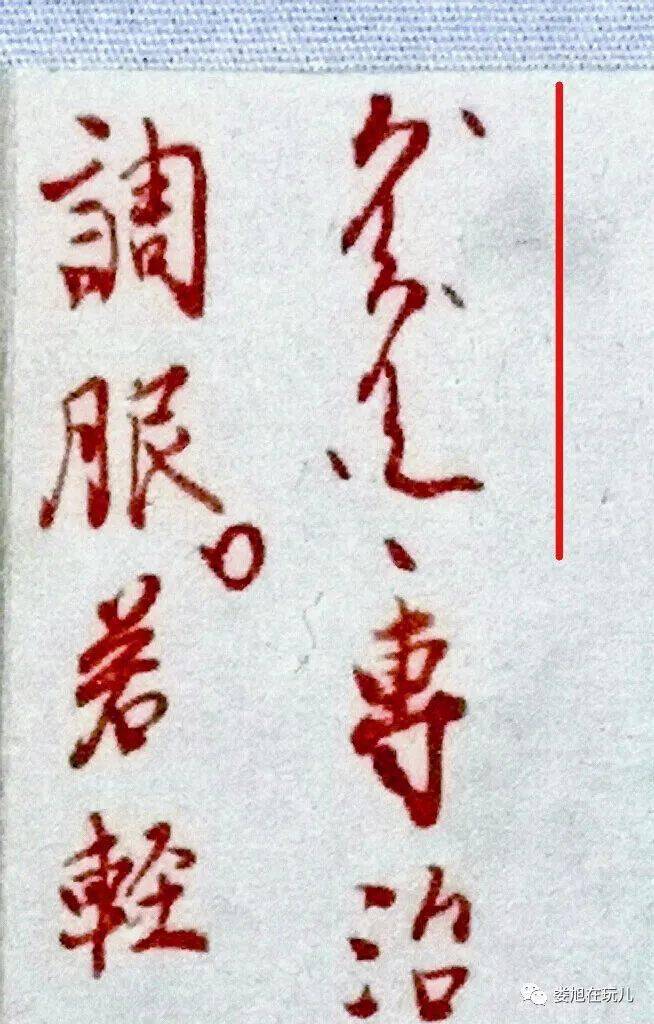 、專治
調服。若輕
娄旭在玩儿